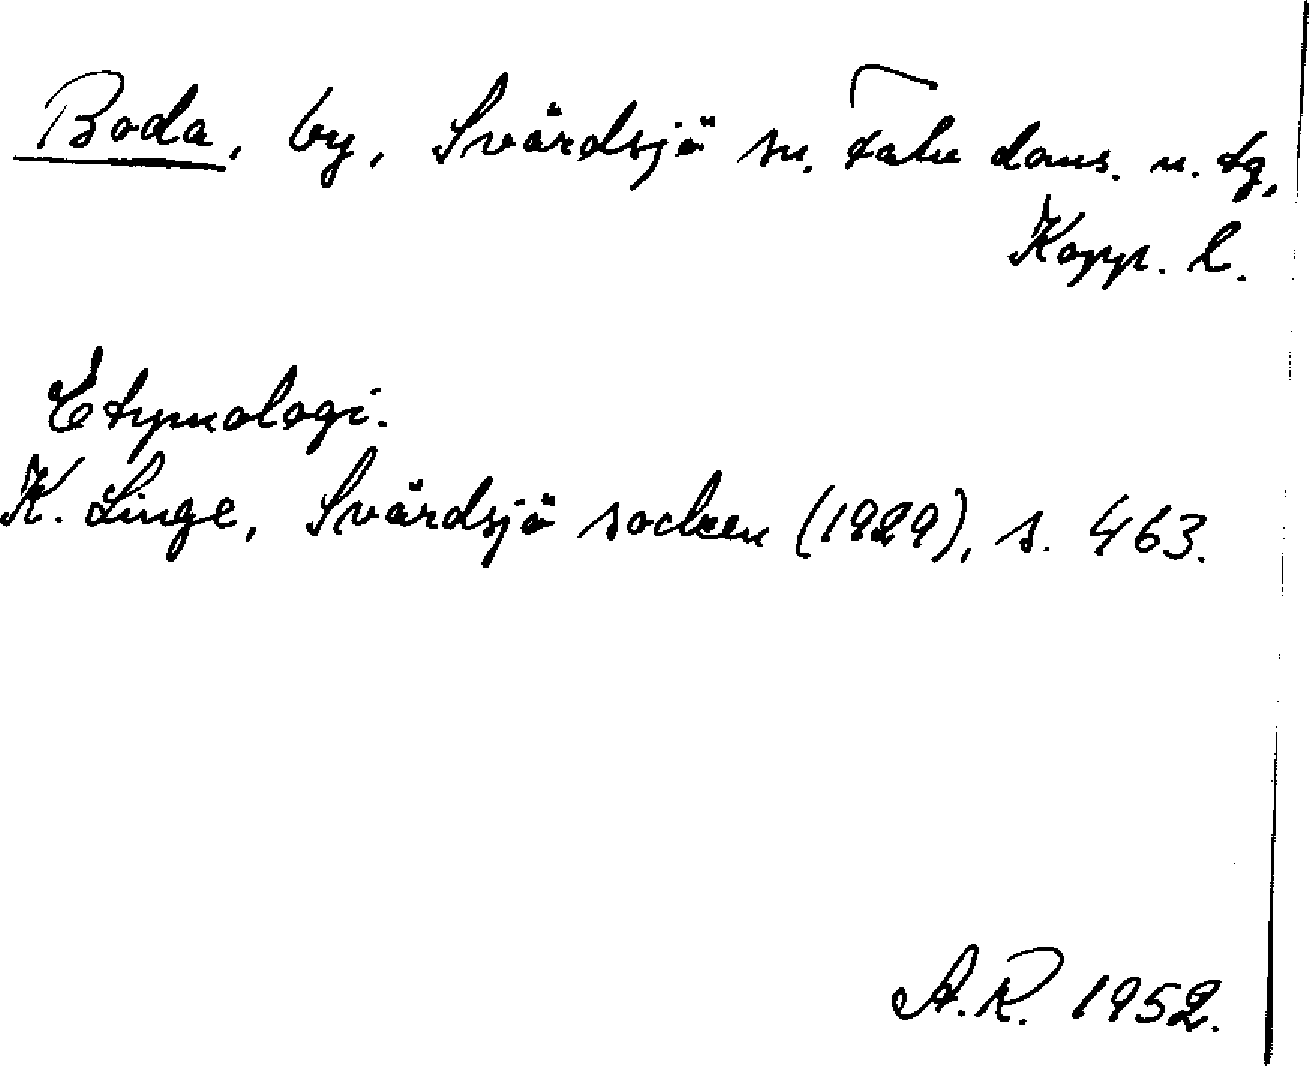 Boda, by, Svärdsjö sn. Falu doms. n. tg,
Kopp. l.
Etymologi.
K. Linge, Svärdsjö socken (1929), s. 463.
A.R. 1952.